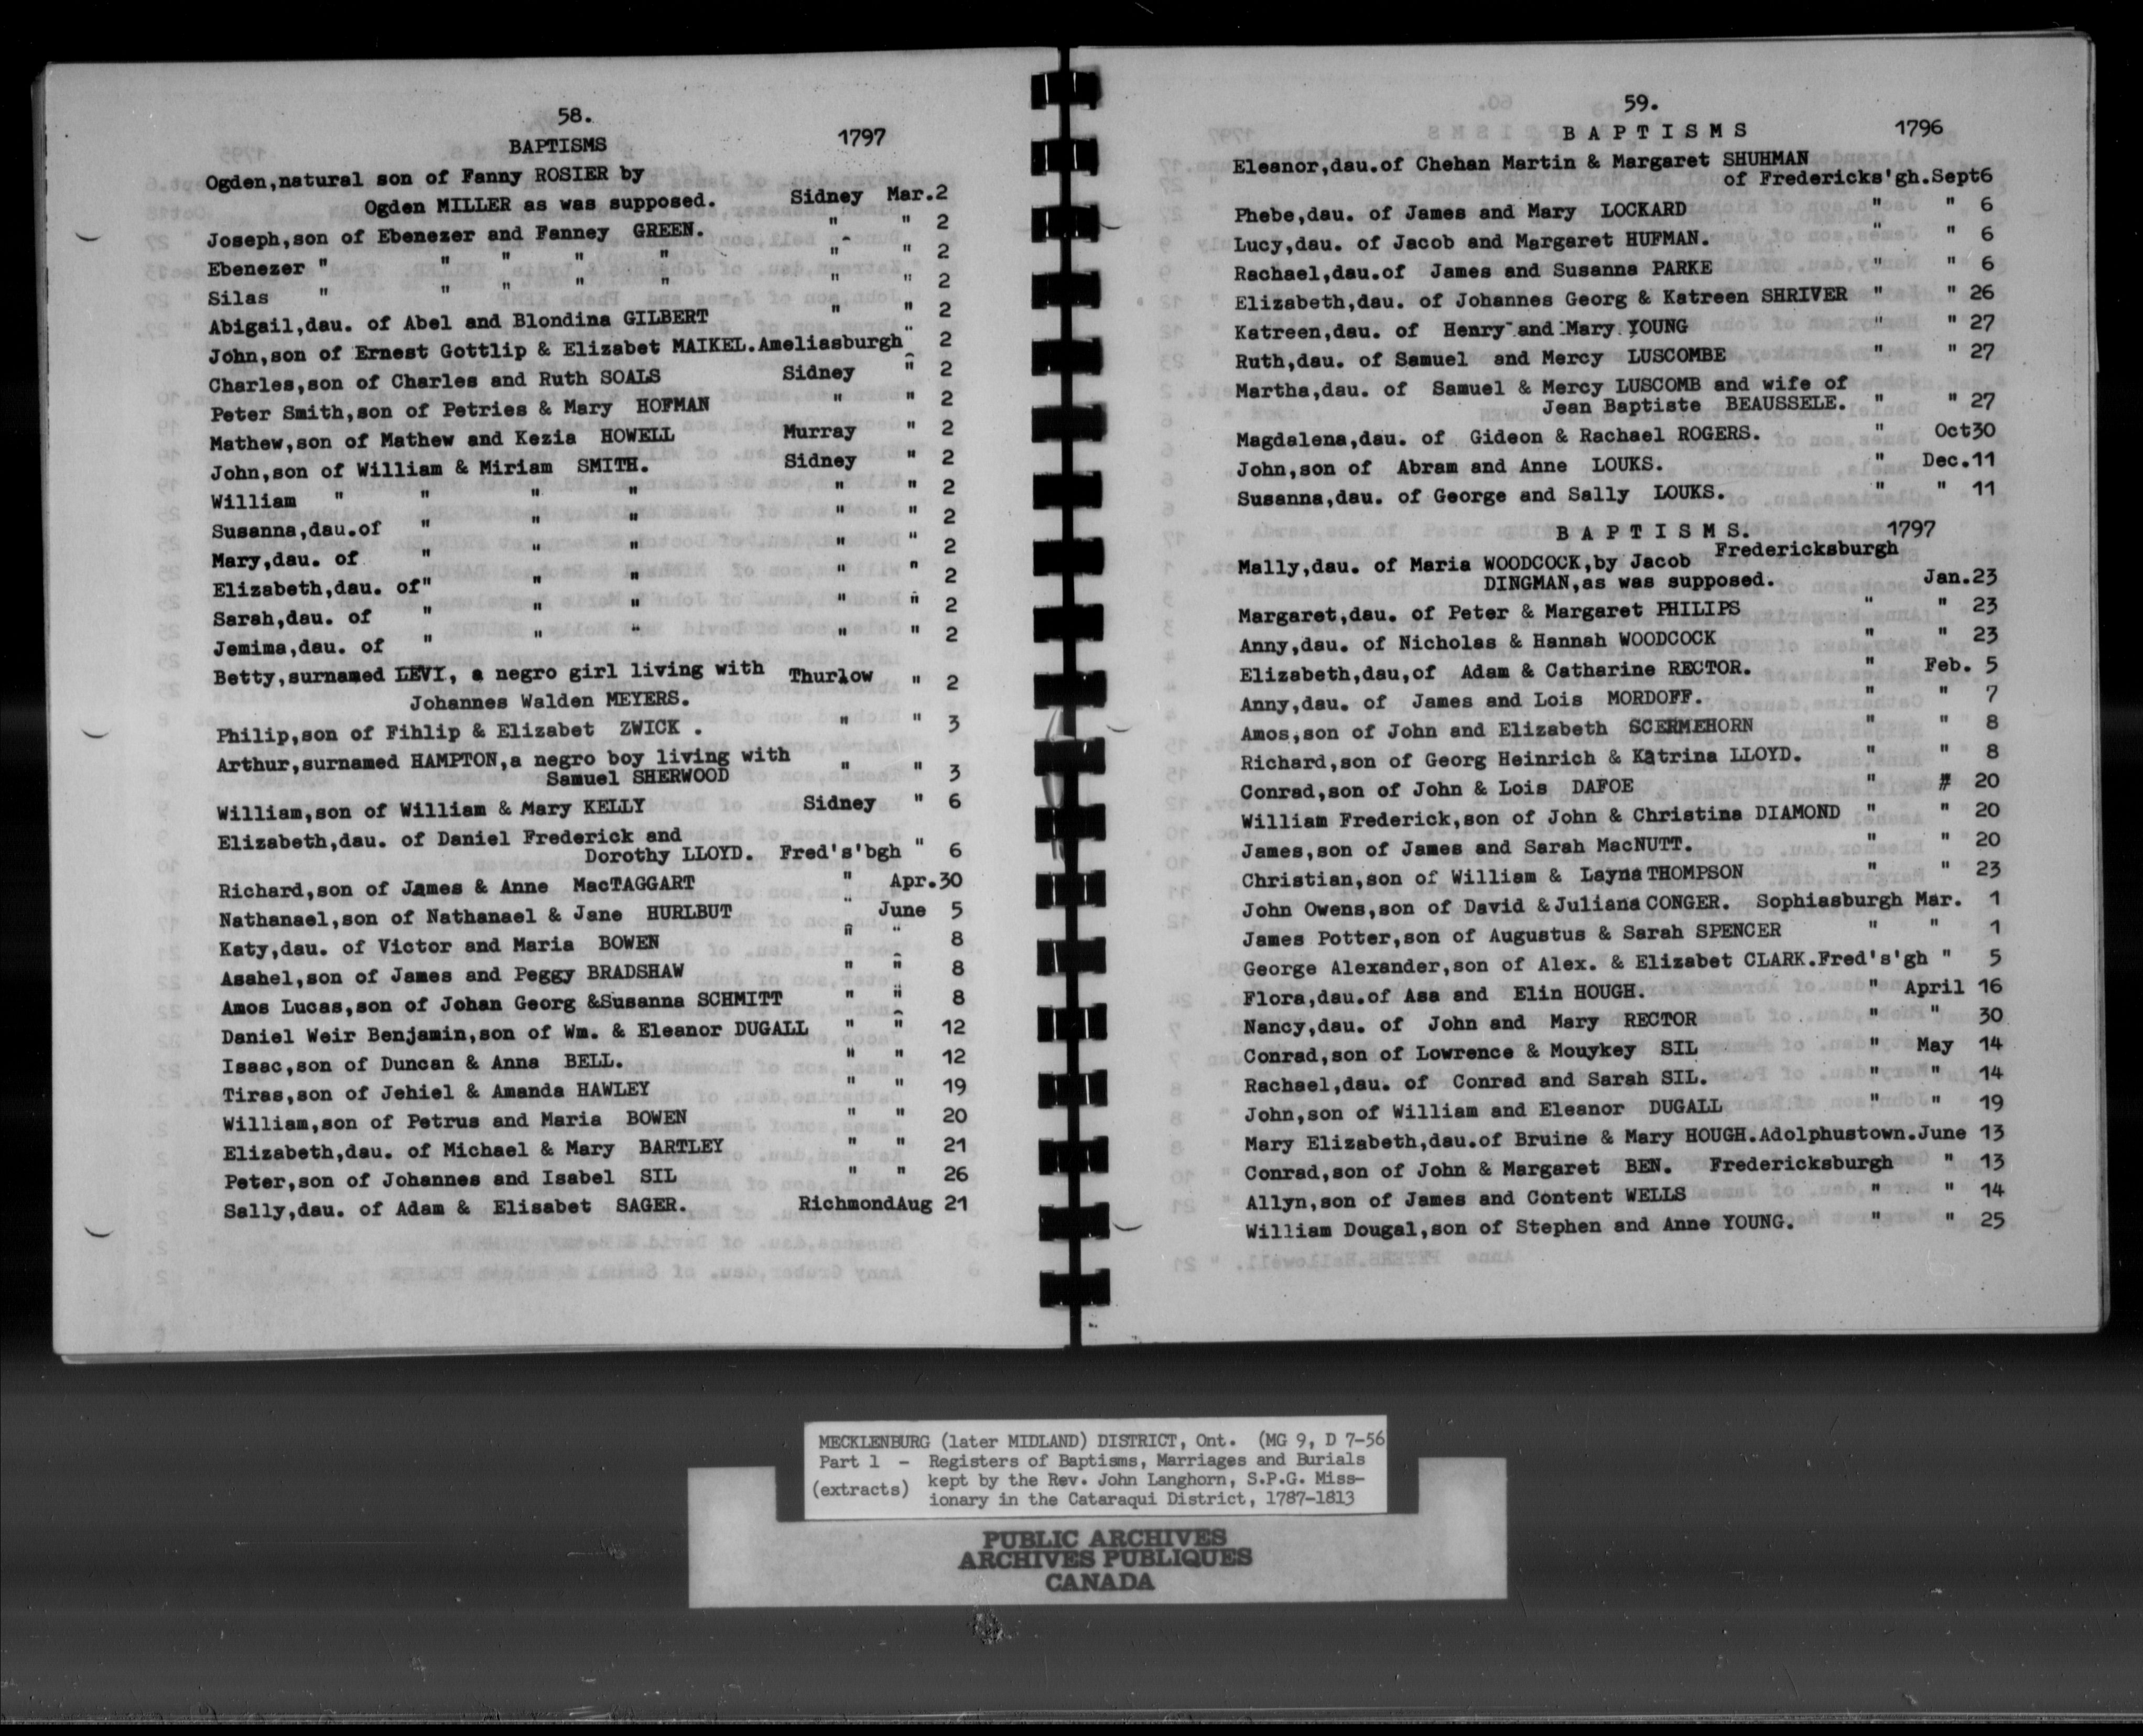 58.
BAPTISMS 1797
Ogden,natural son of Fanny ROSIER by
Ogden MILLER as was supposed. Sidney Mar.2
Joseph,son of Ebenezer and Fanney GREEN. " " 2
Ebenezer " " " " " " " 2
Silas " " " " " " " 2
Abigail,dau. of Abel and Blondina GILBERT " " 2
John,son of Ernest Gottlip & Elizabet MAIKEL.Ameliasburgh " 2
Charles,son of Charles and Ruth SOALS Sidney " 2
Peter Smith,son of Petries & Mary HOFMAN " " 2
Mathew,son of Mathew and Kezia HOWELL Murray " 2
John,son of William & Miriam SMITH. Sidney " 2
William " " " " " " 2
Susanna,dau.of " " " " " 2
Mary,dau. of " " " " " 2
Elizabeth,dau. of" " " " " 2
Sarah,dau. of " " " " " 2
Jemima,dau. of " " " " " 2
Betty,surnamed LEVI, a negro girl living with Thurlow " 2
Johannes Walden MEYERS.
Philip,son of Fihlip & Elizabet ZWICK . " " 3
Arthur,surnamed HAMPTON,a negro boy living with
Samuel SHERWOOD " " 3
William,son of William & Mary KELLY Sidney " 6
Elizabeth,dau. of Daniel Frederick and
Dorothy LLOYD. Fred's'bgh " 6
Richard,son of James & Anne MacTAGGART " Apr.30
Nathanael,son of Nathanael & Jane HURLBUT " June 5
Katy,dau. of Victor and Maria BOWEN " " 8
Asahel,son of James and Peggy BRADSHAW " " 8
Amos Lucas,son of Johan Georg &Susanna SCHMITT " " 8
Daniel Weir Benjamin,son of Wm. & Eleanor DUGALL " " 12
Isaac,son of Duncan & Anna BELL. " " 12
Tiras,son of Jehiel & Amanda HAWLEY " " 19
William,son of Petrus and Maria BOWEN " " 20
Elizabeth,dau. of Michael & Mary BARTLEY " " 21
Peter,son of Johannes and Isabel SIL " " 26
Sally,dau. of Adam & Elisabet SAGER. RichmondAug 21
59.
B A P T I S M S 1796
Eleanor,dau.of Chehan Martin & Margaret SHUHMAN
of Fredericks'gh.Sept6
Phebe,dau. of James and Mary LOCKARD " " 6
Lucy,dau. of Jacob and Margaret HUFMAN. " " 6
Rachael,dau.of James and Susanna PARKE " " 6
Elizabeth,dau. of Johannes Georg & Katreen SHRIVER " " 26
Katreen,dau. of Henry and Mary YOUNG " " 27
Ruth,dau. of Samuel and Mercy LUSCOMBE " " 27
Martha,dau. of Samuel & Mercy LUSCOMB and wife of
Jean Baptiste BEAUSSELE. " " 27
Magdalena,dau. of Gideon & Rachael ROGERS. " Oct30
John,son of Abram and Anne LOUKS. " Dec.11
Susanna,dau. of George and Sally LOUKS. " " 11
B A P T I S M S. 1797
Fredericksburgh
Mally,dau. of Maria WOODCOCK,by Jacob
DINGMAN,as was supposed. Jan.23
Margaret,dau. of Peter & Margaret PHILIPS " " 23
Anny,dau. of Nicholas & Hannah WOODCOCK " " 23
Elizabeth,dau,of Adam & Catharine RECTOR. " Feb. 5
Anny,dau. of James and Lois MORDOFF. " " 7
Amos,son of John and Elizabeth SCERMEHORN " " 8
Richard,son of Georg Heinrich & Katrina LLOYD. " " 8
Conrad,son of John & Lois DAFOE " # 20
William Frederick,son of John & Christina DIAMOND " " 20
James,son of James and Sarah MacNUTT. " " 20
Christian,son of William & Layna THOMPSON " " 23
John Owens,son of David & Juliana CONGER. Sophiasburgh Mar. 1
James Potter,son of Augustus & Sarah SPENCER " " 1
George Alexander,son of Alex. & Elizabet CLARK.Fred's'gh " 5
Flora,dau.of Asa and Elin HOUGH. " April 16
Nancy,dau. of John and Mary RECTOR " " 30
Conrad,son of Lowrence & Mouykey SIL " May 14
Rachael,dau. of Conrad and Sarah SIL. " " 14
John,son of William and Eleanor DUGALL " " 19
Mary Elizabeth,dau.of Bruine & Mary HOUGH.Adolphustown.June 13
Conrad,son of John & Margaret BEN. Fredericksburgh " 13
Allyn,son of James and Content WELLS " " 14
William Dougal,son of Stephen and Anne YOUNG. " " 25
MECKLENBURG (later MIDLAND) DISTRICT, Ont. (MG 9, D 7-56
Part 1 - Registers of Baptisms, Marriages and Burials
(extracts) kept by the Rev. John Langhorn, S.P.G. Miss-
ionary in the Cataraqui District, 1787-1813
PUBLIC ARCHIVES
ARCHIVES PUBLIQUES
CANADA